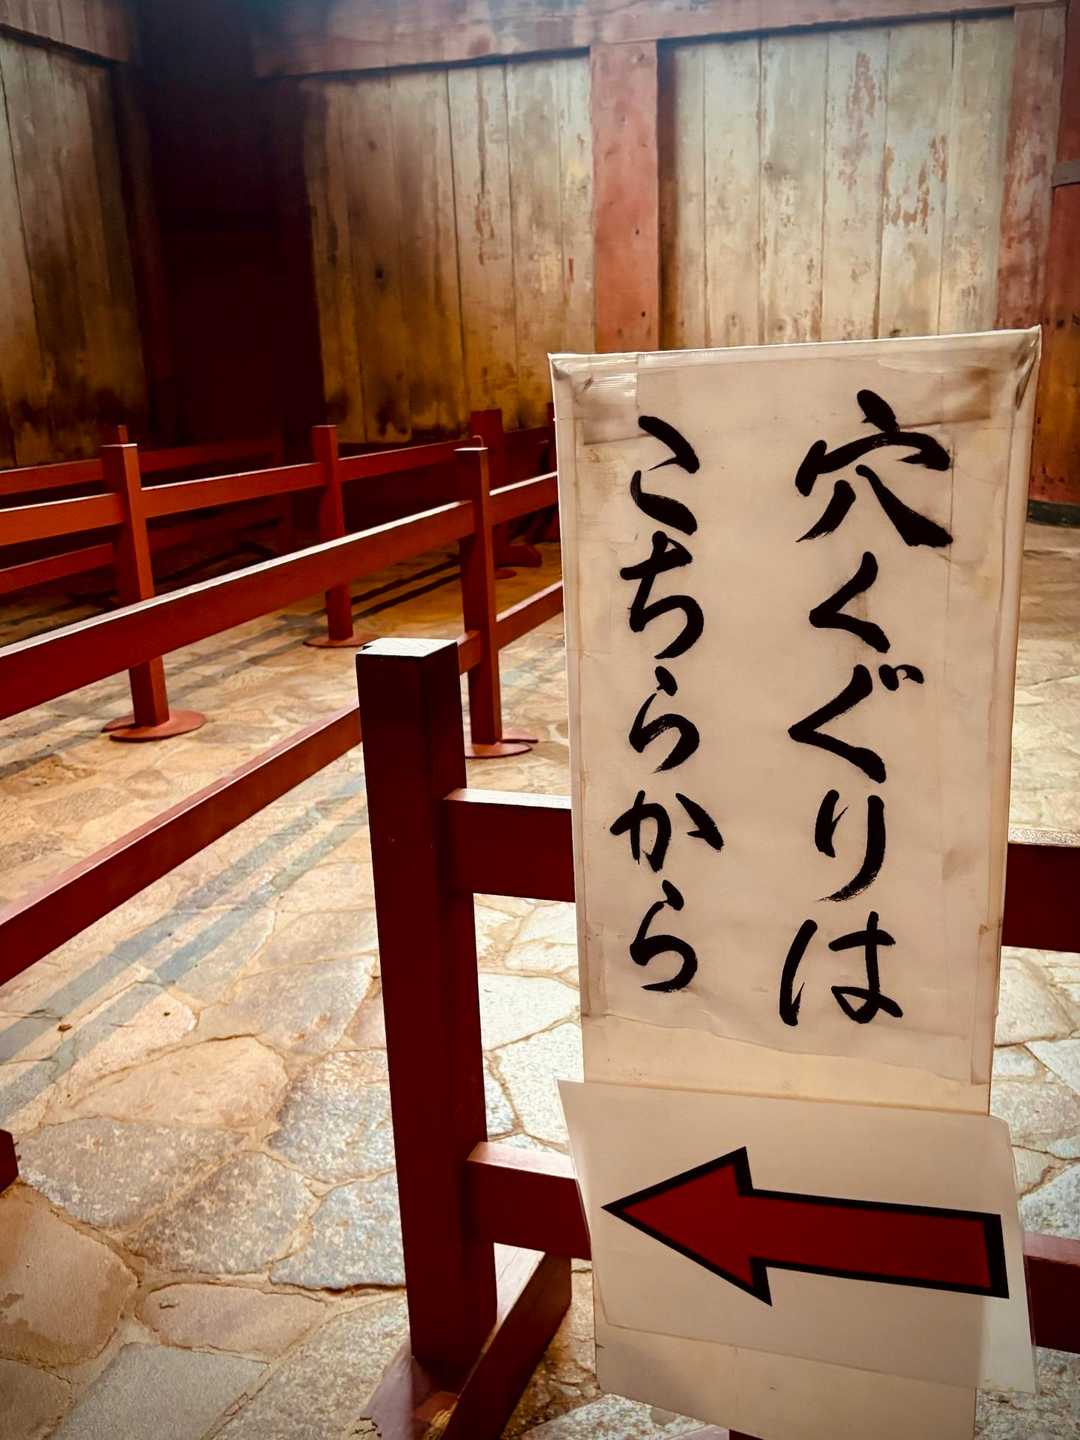 穴くぐりは
こちらから